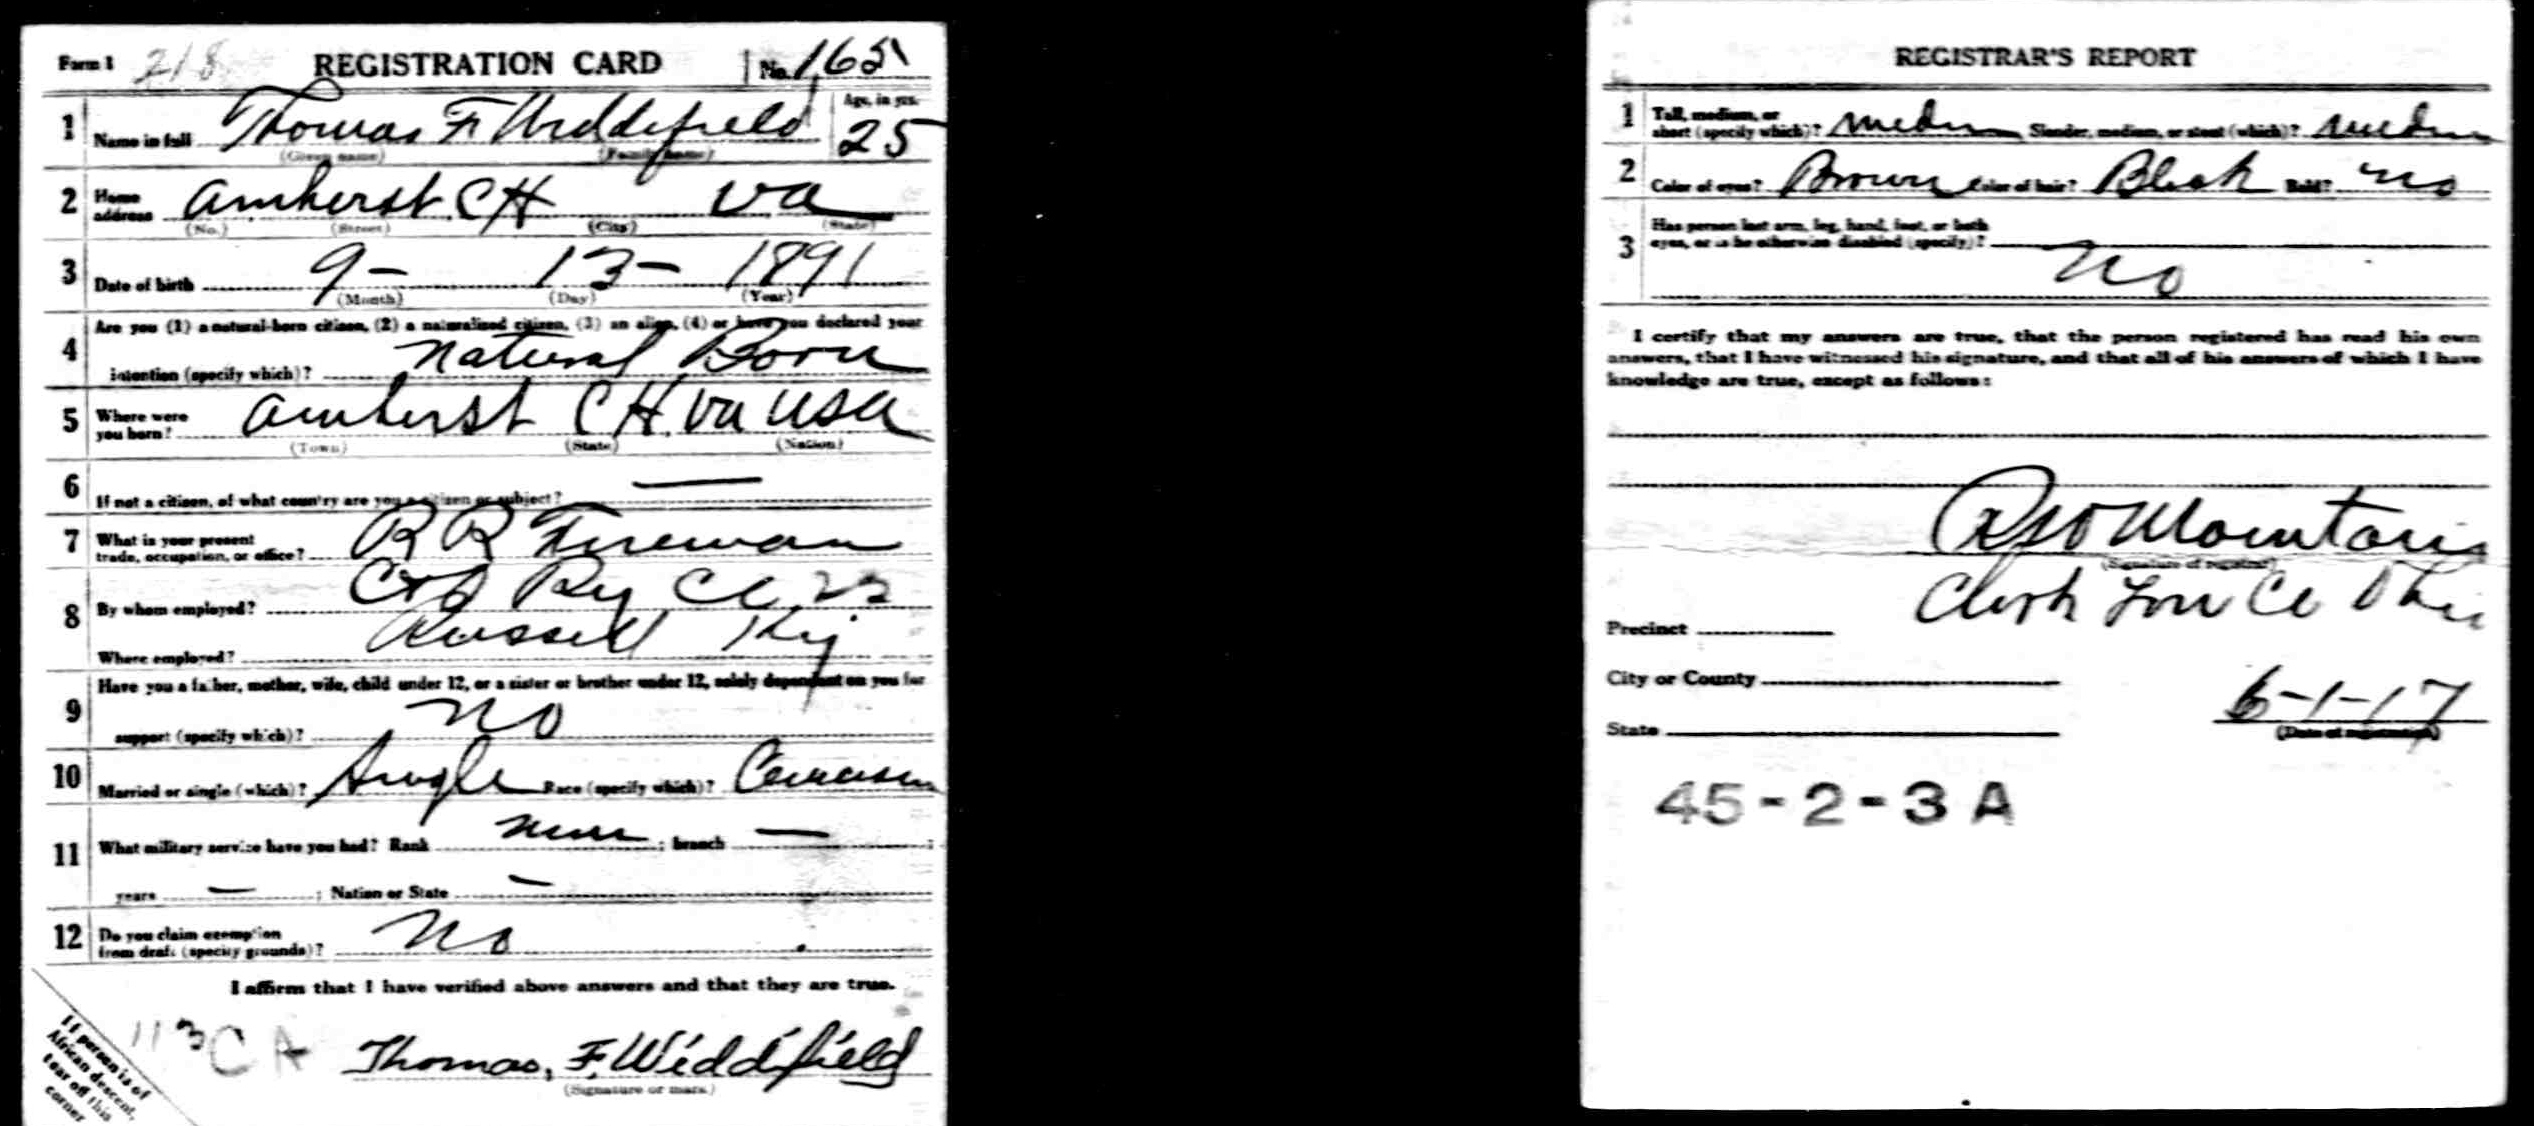 Form 1 218 REGISTRATION CARD No. 165
1 Name in full Thomas F Widdifield Age, in yrs. 25
(Given name) (Family name)
2 Home address Amherst CH Va
(No.) (Street) (City) (State)
3 Date of birth 9- 13- 1891
(Month) (Day) (Year)
4 Are you (1) a natural-born citizen, (2) a naturalized citizen, (3) an alien, (4) or have you declared your
intention (specify which)? Natural Born
5 Where were you born? Amherst CH. Va USA
(Town) (State) (Nation)
6 If not a citizen, of what country are you a citizen or subject? —
7 What is your present trade, occupation, or office? R R Fireman
8 By whom employed? C&O Ry Co
Where employed? Russell Ky
9 Have you a father, mother, wife, child under 12, or a sister or brother under 12, solely dependent on you for
support (specify which)? No
10 Married or single (which)? Single Race (specify which)? Caucasian
11 What military service have you had? Rank None ; branch — ;
years — ; Nation or State —
12 Do you claim exemption from draft (specify grounds)? No
I affirm that I have verified above answers and that they are true.
113 C A Thomas, F. Widdifield
(Signature or mark)
If person is of
African descent,
tear off this
corner
REGISTRAR'S REPORT
1 Tall, medium, or short (specify which)? Medium Slender, medium, or stout (which)? Medium
2 Color of eyes? Brown Color of hair? Black Bald? No
3 Has person lost arm, leg, hand, foot, or both
eyes, or is he otherwise disabled (specify)?
No
I certify that my answers are true, that the person registered has read his own
answers, that I have witnessed his signature, and that all of his answers of which I have
knowledge are true, except as follows:
Mountain
(Signature of registrar)
Precinct Clerk Co
City or County
State 6-1-17
(Date of registration)
45-2-3 A